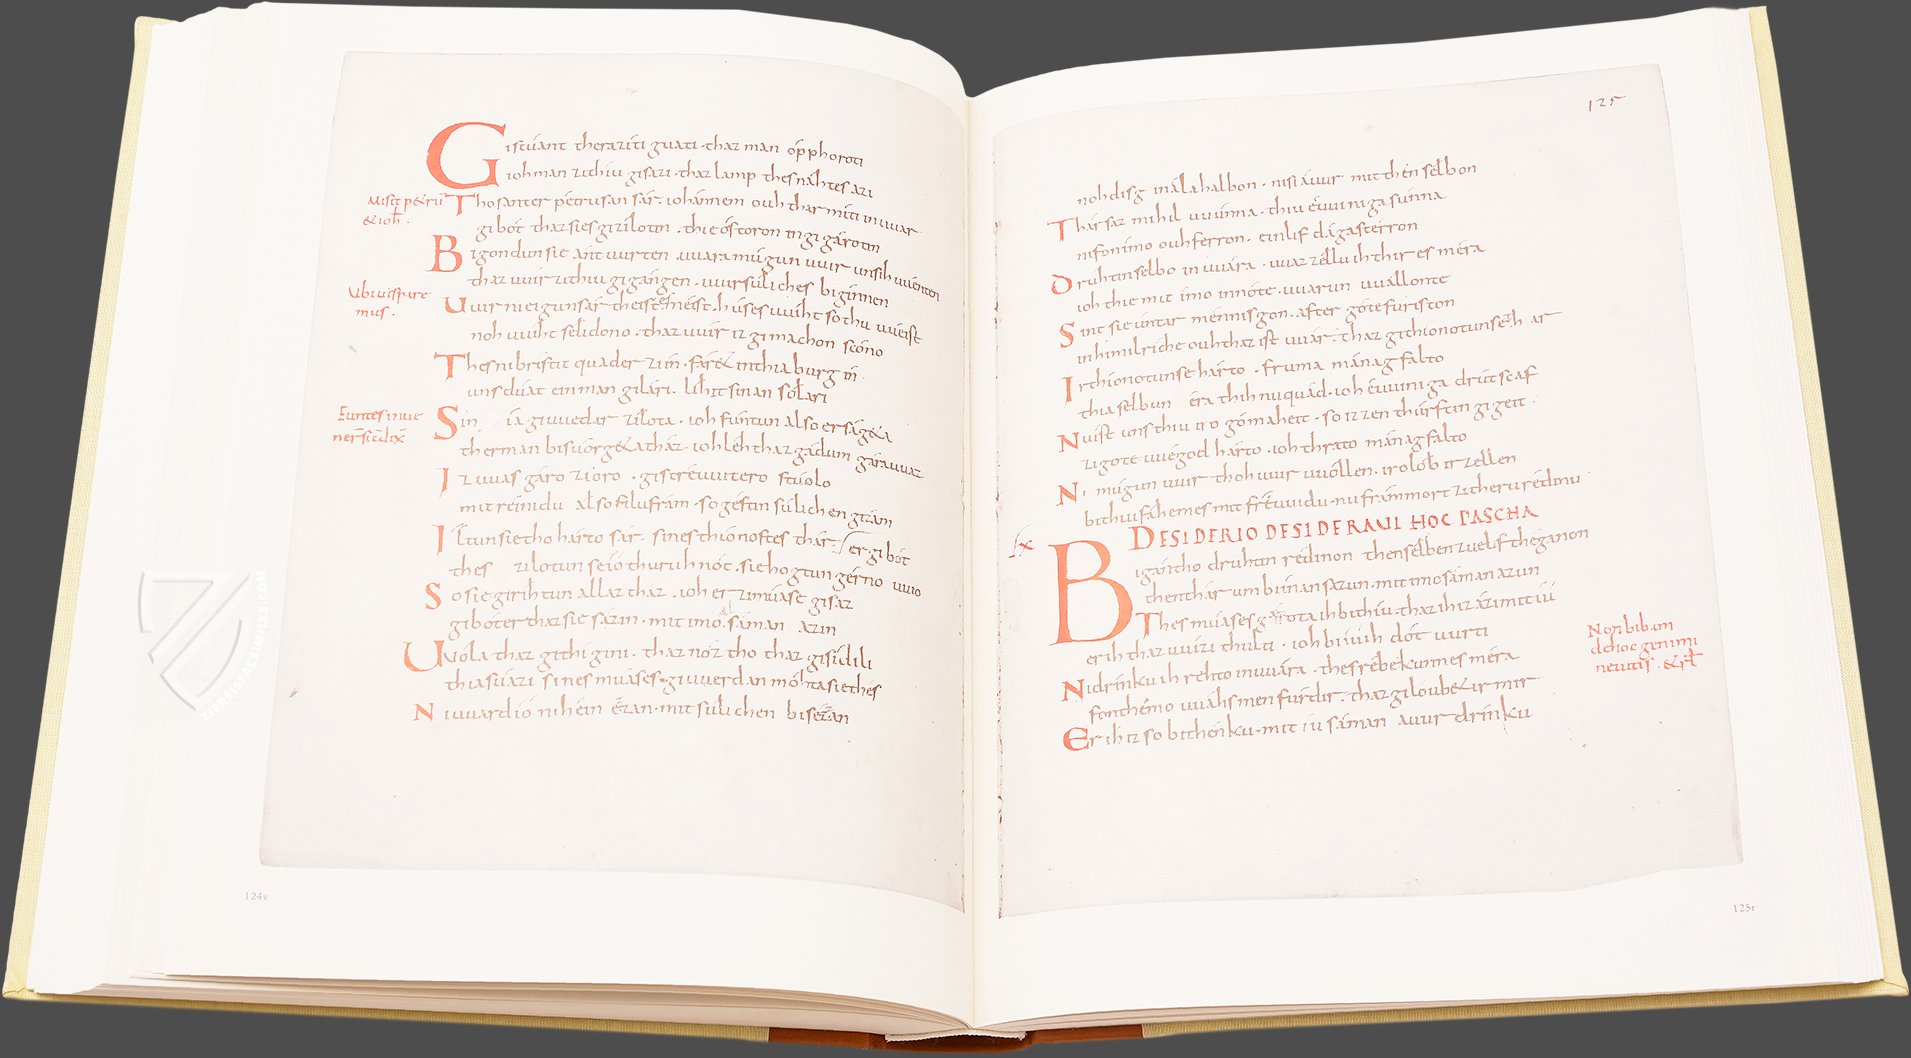 Gistúant thera ziti guati · thaz man ópphoroti
ioh man zi thiu gisazi · thaz lamp thes náhtes azi
Misit petrū
& ioh̄ .
Tho santer pétrusan sár · iohánnem ouh thar míti in uuar
gibót thaz sies gizílotin · thie óstoron in gigárotin
Bigondun sie ánt uurten · uuara múgun uuir unsih uuenten
thaz uuir zi thiu gigángen · uuir súliches biginnen
Ubi uis pare
mus .
Uuir n eigun sár theist méist · húses uuiht so thu uuéist
noh uuiht selidono · thar uuir iz gimachon scóno
Thes nibristit quad er zi ín · fár& in thia burg ín ·
uns dúat ein man gilári · lihit sinan sólari
Euntes inue
nerūt sic̄ dix̄
Sin ía giuuedar zílota · ioh fúntun al so er ság&a
ther man bifúorg&a thár · ioh léh thaz gádum gárauuaz
Iz uuas gáro zioro · gistréuuitero stúolo
mit réinidu also filu fram · so géstin súlichen gizám
Iltun sie tho hárto sár · sines thionostes thár · er gibót
thes zilotun se io thuruh nót · sie hogtun gérno uuio
So sie girihtun allaz thaz · ioh er zi múase gisaz
gibót er thaz sie sázin · mit imo sáman azin
Uuola thaz githigini · thaz nóz tho thaz gisídili
thia suázi sines múases · giuuerdan móhta sie thés
Ni uuard io nihéin ézan · mit súlichen bisézan
124v
ZIEREISFACSIMILES.COM
125
noh disg in ála halbon · nisi áuur mit then sélbon
Thár saz mihil uuúnna · thiu éuuiniga súnna
nifon ímo ouh ferron · einlif dágasterron
Druhtin selbo in uuára · uuaz zéllu ih thir es méra
ioh thie mit imo in nóte · uuarun uuallonte
Sint sie untar ménnisgon · after góte furiston
in himilriche ouh thaz ist uuár · thaz githionotun se hiar
Irthionotun se hárto · fruma mánagfalto
thia selbun éra thih nu quád · ioh éuuiniga drútscaf
Nuist uns thiu iro gómaheit · so iz zen thúrftin gigeit ·
zi gote uuégod hárto · ioh thrato mánagfalto
Ni múgun uuir thoh uuir uuóllen · iro lób irzellen
bithiu fáhemes mit fréuuidu · nu frámmort zi theru rédinu
ix
DESIDERIO DESIDERAUI HOC PASCHA
Bigán tho druhtin rédinon then sélben zuelif théganon
then thár umbi ínan sazun · mit imo sáman azun
Thes múases gérota ih bi thiu · thaz ih iz ázi mit iu
er ih thaz uuízi thulti · ioh bi iuih dót uurti
Non bibam
de hoc genimi
ne uitis · & rł
Ni drínku ih rehto in uuára · thes rébekunnes méra
fon thémo uuáhsmen fúrdir · thaz giloub& ir mir
Er ih iz so bithénku · mit iu sáman auur drínku
125r